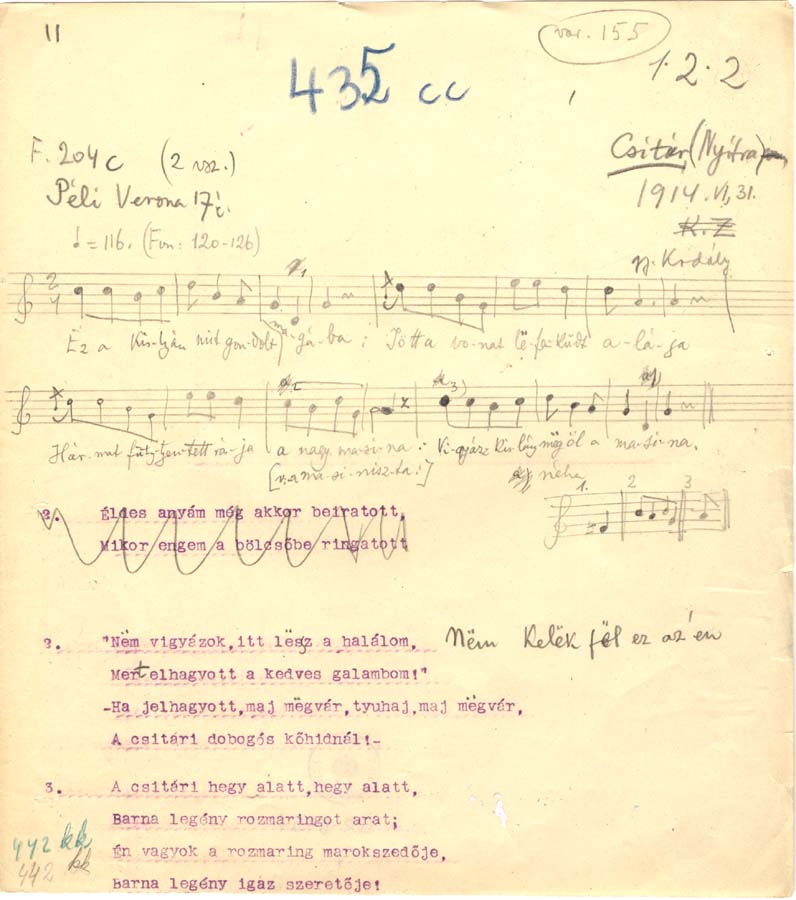 11
var. 155
435 cc
1.2.2
F. 204 c (2 vsz.)
Csitár (Nyitra)
Péli Verona 17 é.
1914. VI, 31.
K. Z
♩ = 116. (Fon: 120-126)
gy. Kodály
2
4
Ez a kis-lyán mit gon-dolt ma-gá-ba: Jött a vo-nat lë-fe-küdt a-lá-ja
3)
Hár-mat füty-tyen-tett rá-ja a nagy ma-si-na: Vi-gyázz kis-lány mëg öl a ma-si-na.
[v: a ma-si-nisz-ta:]
néha
1. 2 3
2. Édes anyám még akkor beiratott,
Mikor engem a bölcsőbe ringatott
2. "Nëm vigyázok, itt lësz a halálom, Nëm kelëk föl ez az én
Mert elhagyott a kedves galambom!"
-Ha jelhagyott, maj mëgvár, tyuhaj, maj mëgvár,
A csitári dobogós kőhidnál!-
3. A csitári hegy alatt, hegy alatt,
Barna legény rozmaringot arat;
Én vagyok a rozmaring marokszedője,
Barna legény igaz szeretője!
442 kk
442 kk